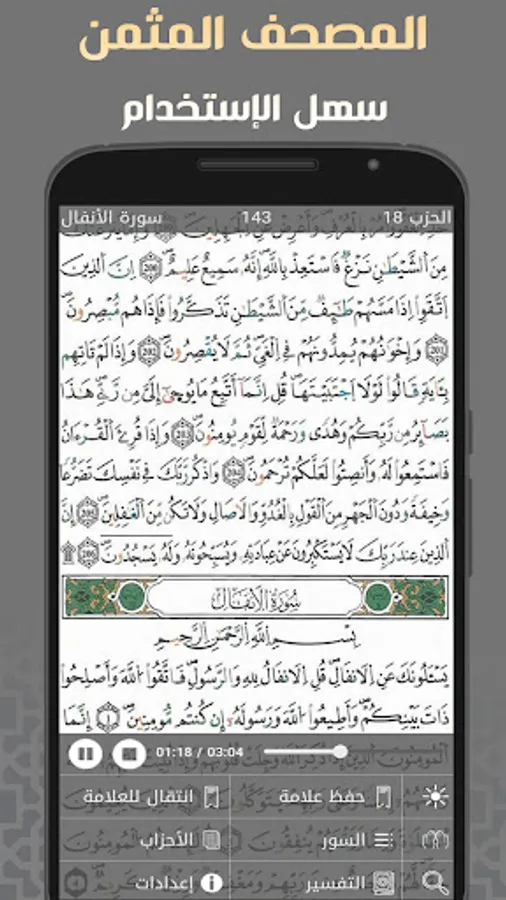 المصحف المثمن
سهل الإستخدام
الحزب 18
143
سورة الأنفال
مِنَ اَ۬لشَّيْطَٰنِ نَزْغٞ فَاسْتَعِذْ بِاللَّهِ إِنَّهُۥ سَمِيعٌ عَلِيمٌ 200 إِنَّ اَ۬لذِينَ
اَ۪تَّقَوِاْ اِذَا مَسَّهُمْ طَٰٓئِفٞ مِّنَ اَ۬لشَّيْطَٰنِ تَذَكَّرُواْ فَإِذَا هُم مُّبْصِرُونَ
201 وَإِخْوَٰنُهُمْ يُمِدُّونَهُمْ فِے اِ۬لْغَيِّ ثُمَّ لَا يُقْصِرُونَ 202 وَإِذَا لَمْ تَاتِهِم
بِـَٔايَةٖ قَالُواْ لَوْلَا اَ۪جْتَبَيْتَهَا قُلِ اِنَّمَآ أَتَّبِعُ مَا يُوحَيٰٓ إِلَيَّ مِن رَّبِّے هَٰذَا
بَصَآئِرُ مِن رَّبِّكُمْ وَهُديٗ وَرَحْمَةٞ لِّقَوْمٖ يُومِنُونَ 203 وَإِذَا قُرِۓَ اَ۬لْقُرْءَانُ
فَاسْتَمِعُواْ لَهُۥ وَأَنصِتُواْ لَعَلَّكُمْ تُرْحَمُونَ 204 وَاذْكُر رَّبَّكَ فِے نَفْسِكَ تَضَرُّعاٗ
وَخِيفَةٗ وَدُونَ اَ۬لْجَهْرِ مِنَ اَ۬لْقَوْلِ بِالْغُدُوِّ وَالَاصَالِ وَلَا تَكُن مِّنَ اَ۬لْغَٰفِلِينَ 205 إِنَّ
اَ۬لذِينَ عِندَ رَبِّكَ لَا يَسْتَكْبِرُونَ عَنْ عِبَادَتِهِۦ وَيُسَبِّحُونَهُۥ وَلَهُۥ يَسْجُدُونَ 206 ۩
سُورَةُ اُ۬لَانفَالِ
بِسْمِ اِ۬للَّهِ اِ۬لرَّحْمَٰنِ اِ۬لرَّحِيمِ
يَسْـَٔلُونَكَ عَنِ اِ۬لَانفَالِ قُلِ اِ۬لَانفَالُ لِلهِ وَالرَّسُولِ فَاتَّقُواْ اُ۬للَّهَ وَأَصْلِحُواْ
ذَاتَ بَيْنِكُمْ وَأَطِيعُواْ اُ۬للَّهَ وَرَسُولَهُۥٓ إِن كُنتُم مُّومِنِينَ 1 إِنَّمَا
01:18 / 03:04
حفظ علامة
انتقال للعلامة
السور
الأحزاب
التفسير
إعدادات